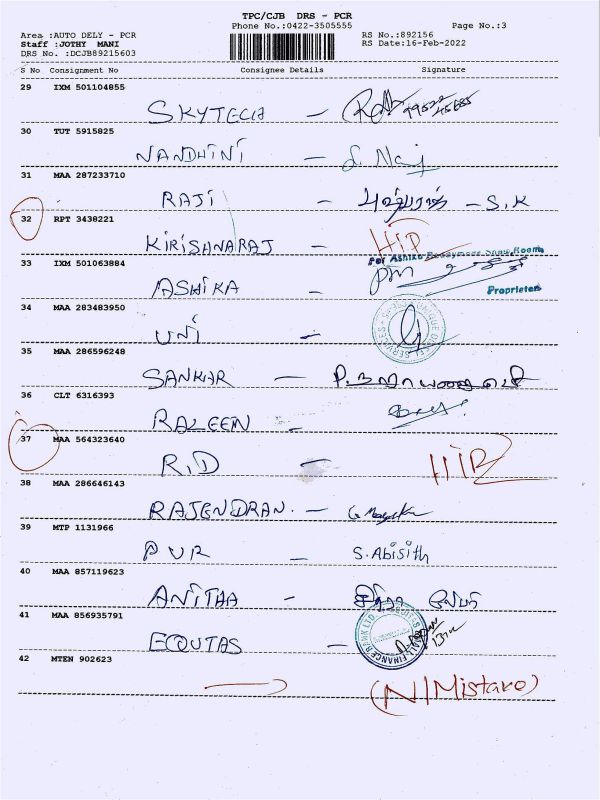 TPC/CJB DRS - PCR
Phone No.:0422-3505555
Page No.:3
Area :AUTO DELY - PCR
RS No.:892156
Staff :JOTHY MANI
RS Date:16-Feb-2022
DRS No. :DCJB89215603
S No Consignment No Consignee Details Signature
29 IXM 501104855
SKYTECH -
30 TUT 5915825
NANDHINI -
31 MAA 287233710
RAJI - S.K
32 RPT 3438221
KIRISHNARAJ - HIP
33 IXM 501063884
For Ashika
ASHIKA -
Proprietor
34 MAA 283483950
UNI -
35 MAA 286596248
SANKAR -
36 CLT 6316393
RALEEM -
37 MAA 564323640
R.D - HIP
38 MAA 286646143
RAJENDRAN. -
39 MTP 1131966
PUR - S. Abisith
40 MAA 857119623
ANITHA -
41 MAA 856935791
EQUTAS -
42 MTEN 902623
(N/Mistake)